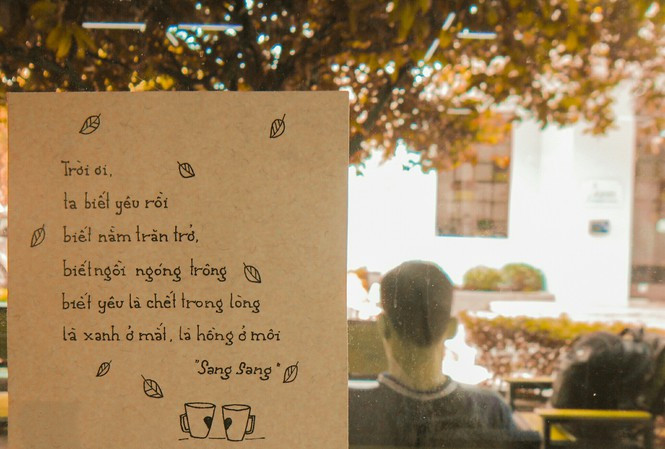 Trời ơi,
ta biết yêu rồi
biết nằm trăn trở,
biết ngồi ngóng trông
biết yêu là chết trong lòng
là xanh ở mắt, là hồng ở môi
"Sang Sang"